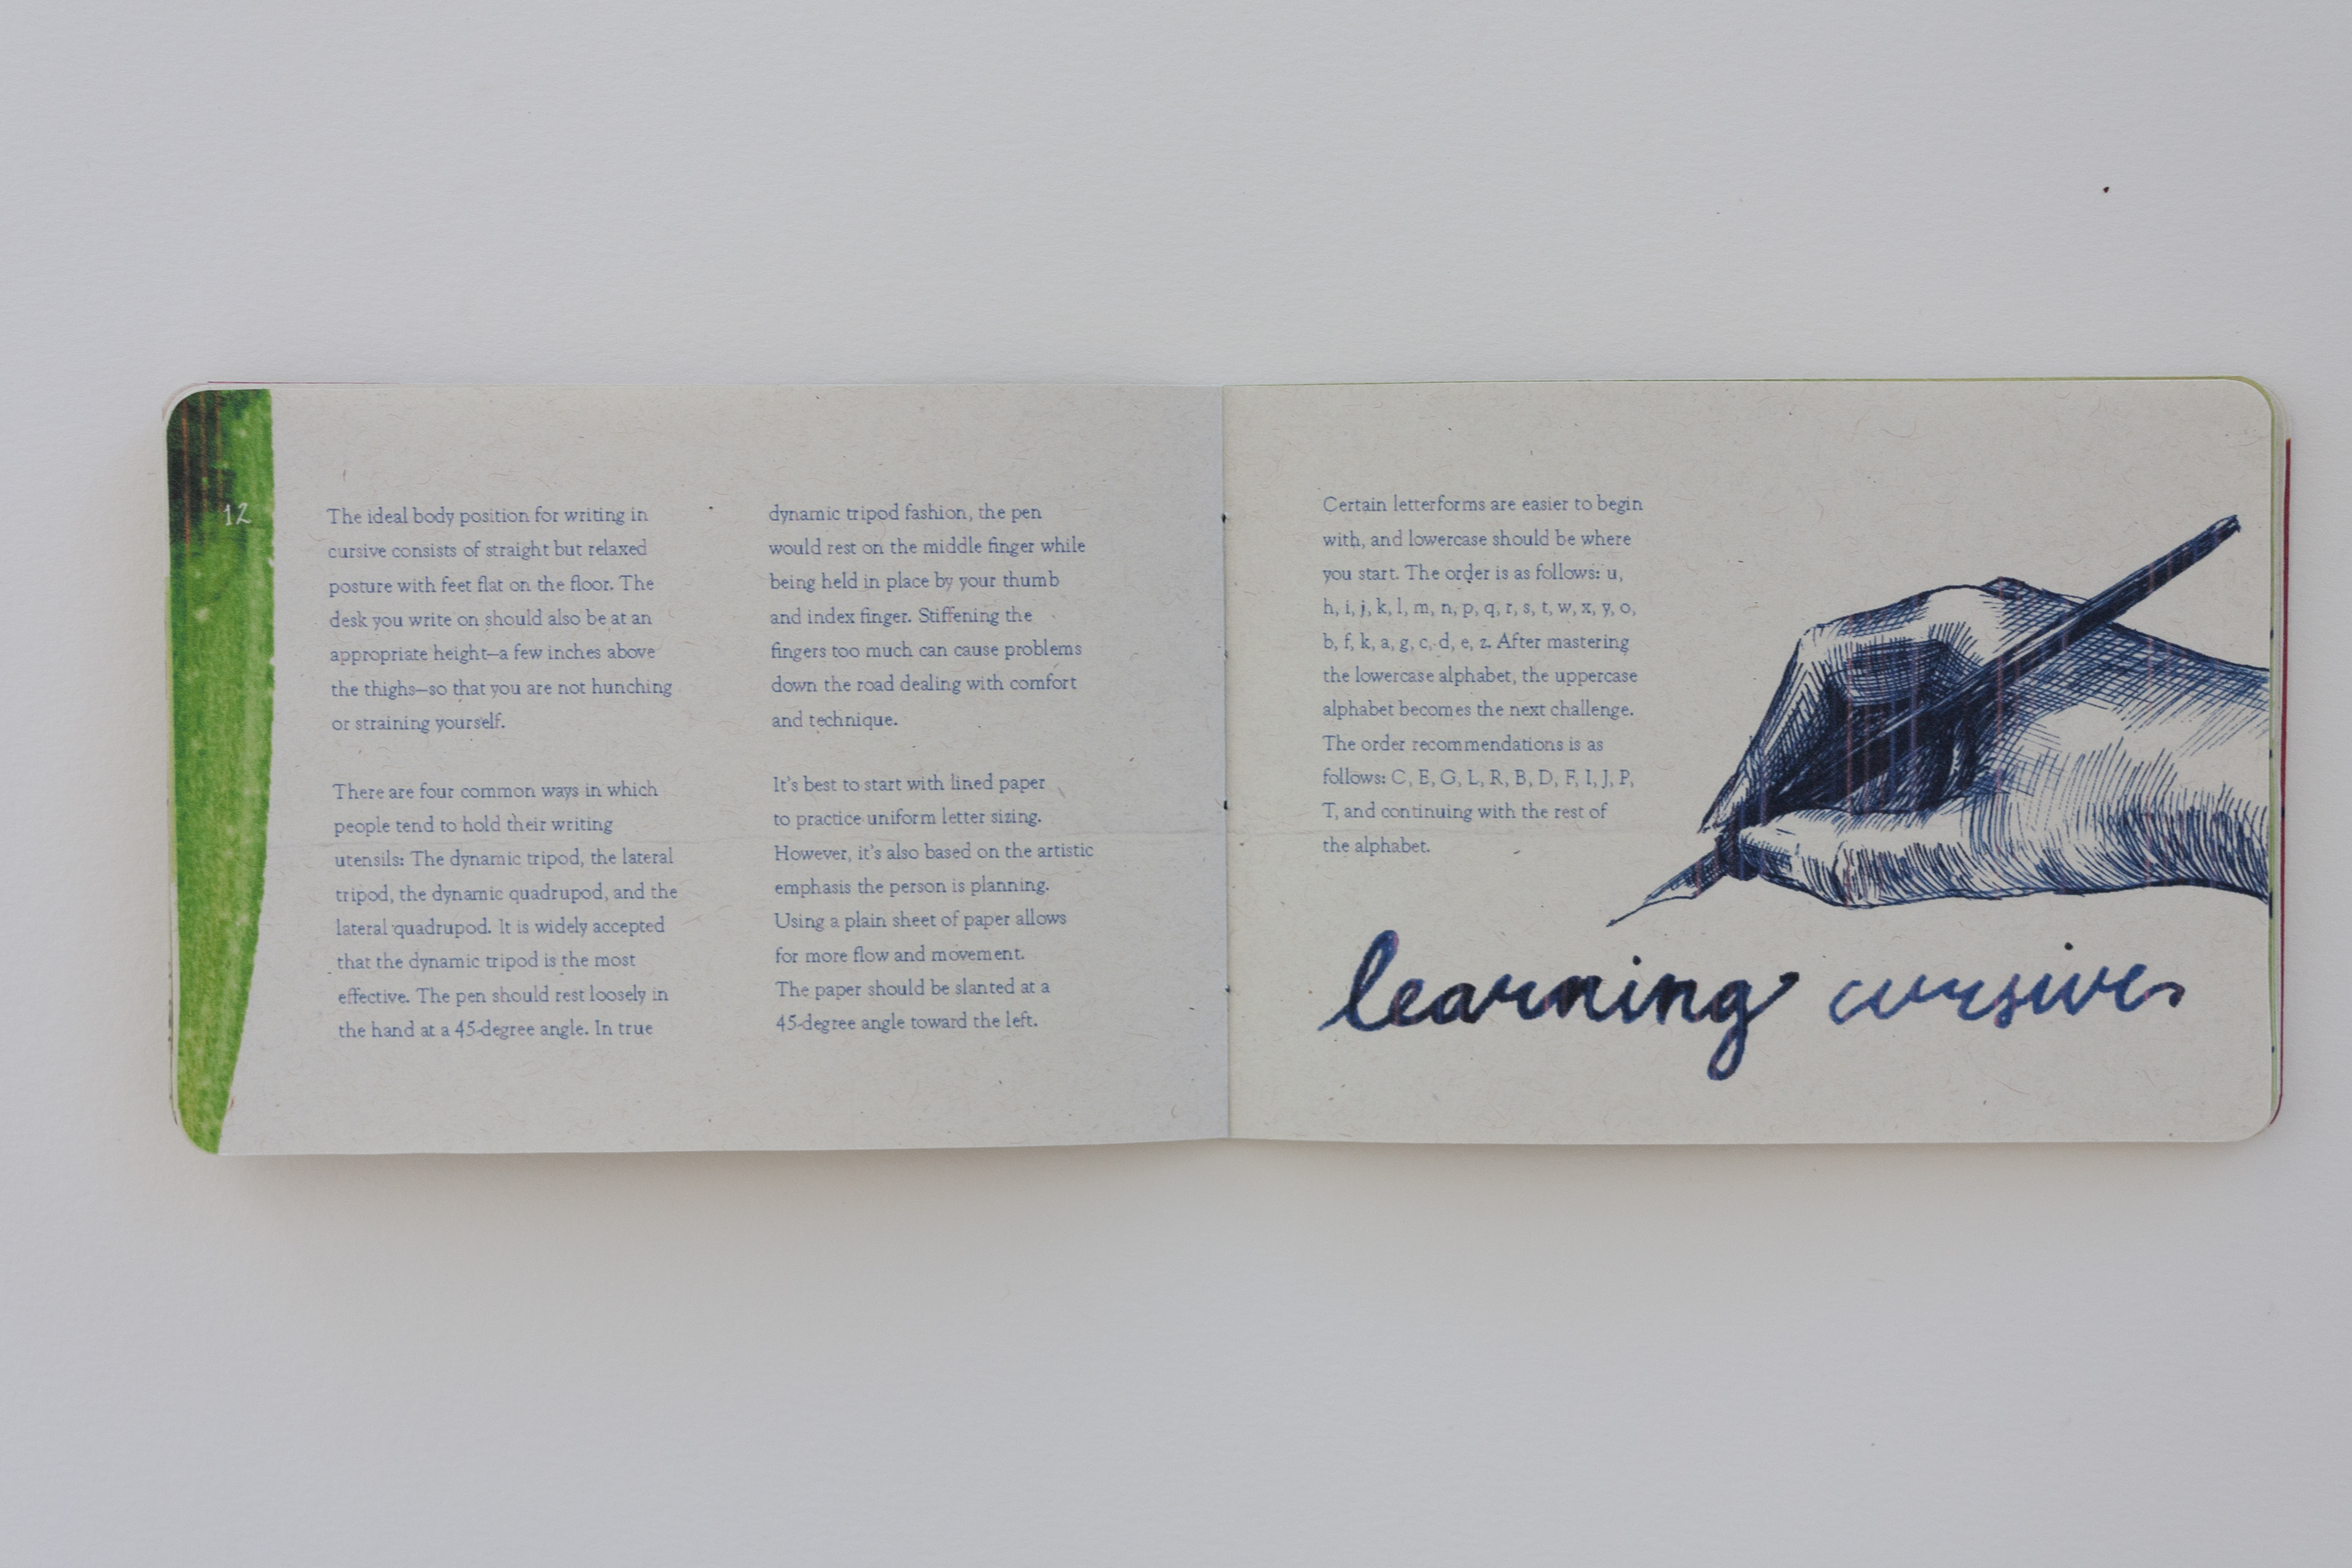 12
The ideal body position for writing in
cursive consists of straight but relaxed
posture with feet flat on the floor. The
desk you write on should also be at an
appropriate height—a few inches above
the thighs—so that you are not hunching
or straining yourself.
There are four common ways in which
people tend to hold their writing
utensils: The dynamic tripod, the lateral
tripod, the dynamic quadrupod, and the
lateral quadrupod. It is widely accepted
that the dynamic tripod is the most
effective. The pen should rest loosely in
the hand at a 45-degree angle. In true
dynamic tripod fashion, the pen
would rest on the middle finger while
being held in place by your thumb
and index finger. Stiffening the
fingers too much can cause problems
down the road dealing with comfort
and technique.
It's best to start with lined paper
to practice uniform letter sizing.
However, it's also based on the artistic
emphasis the person is planning.
Using a plain sheet of paper allows
for more flow and movement.
The paper should be slanted at a
45-degree angle toward the left.
Certain letterforms are easier to begin
with, and lowercase should be where
you start. The order is as follows: u,
h, i, j, k, l, m, n, p, q, r, s, t, w, x, y, o,
b, f, k, a, g, c, d, e, z. After mastering
the lowercase alphabet, the uppercase
alphabet becomes the next challenge.
The order recommendations is as
follows: C, E, G, L, R, B, D, F, I, J, P,
T, and continuing with the rest of
the alphabet.
learning cursive